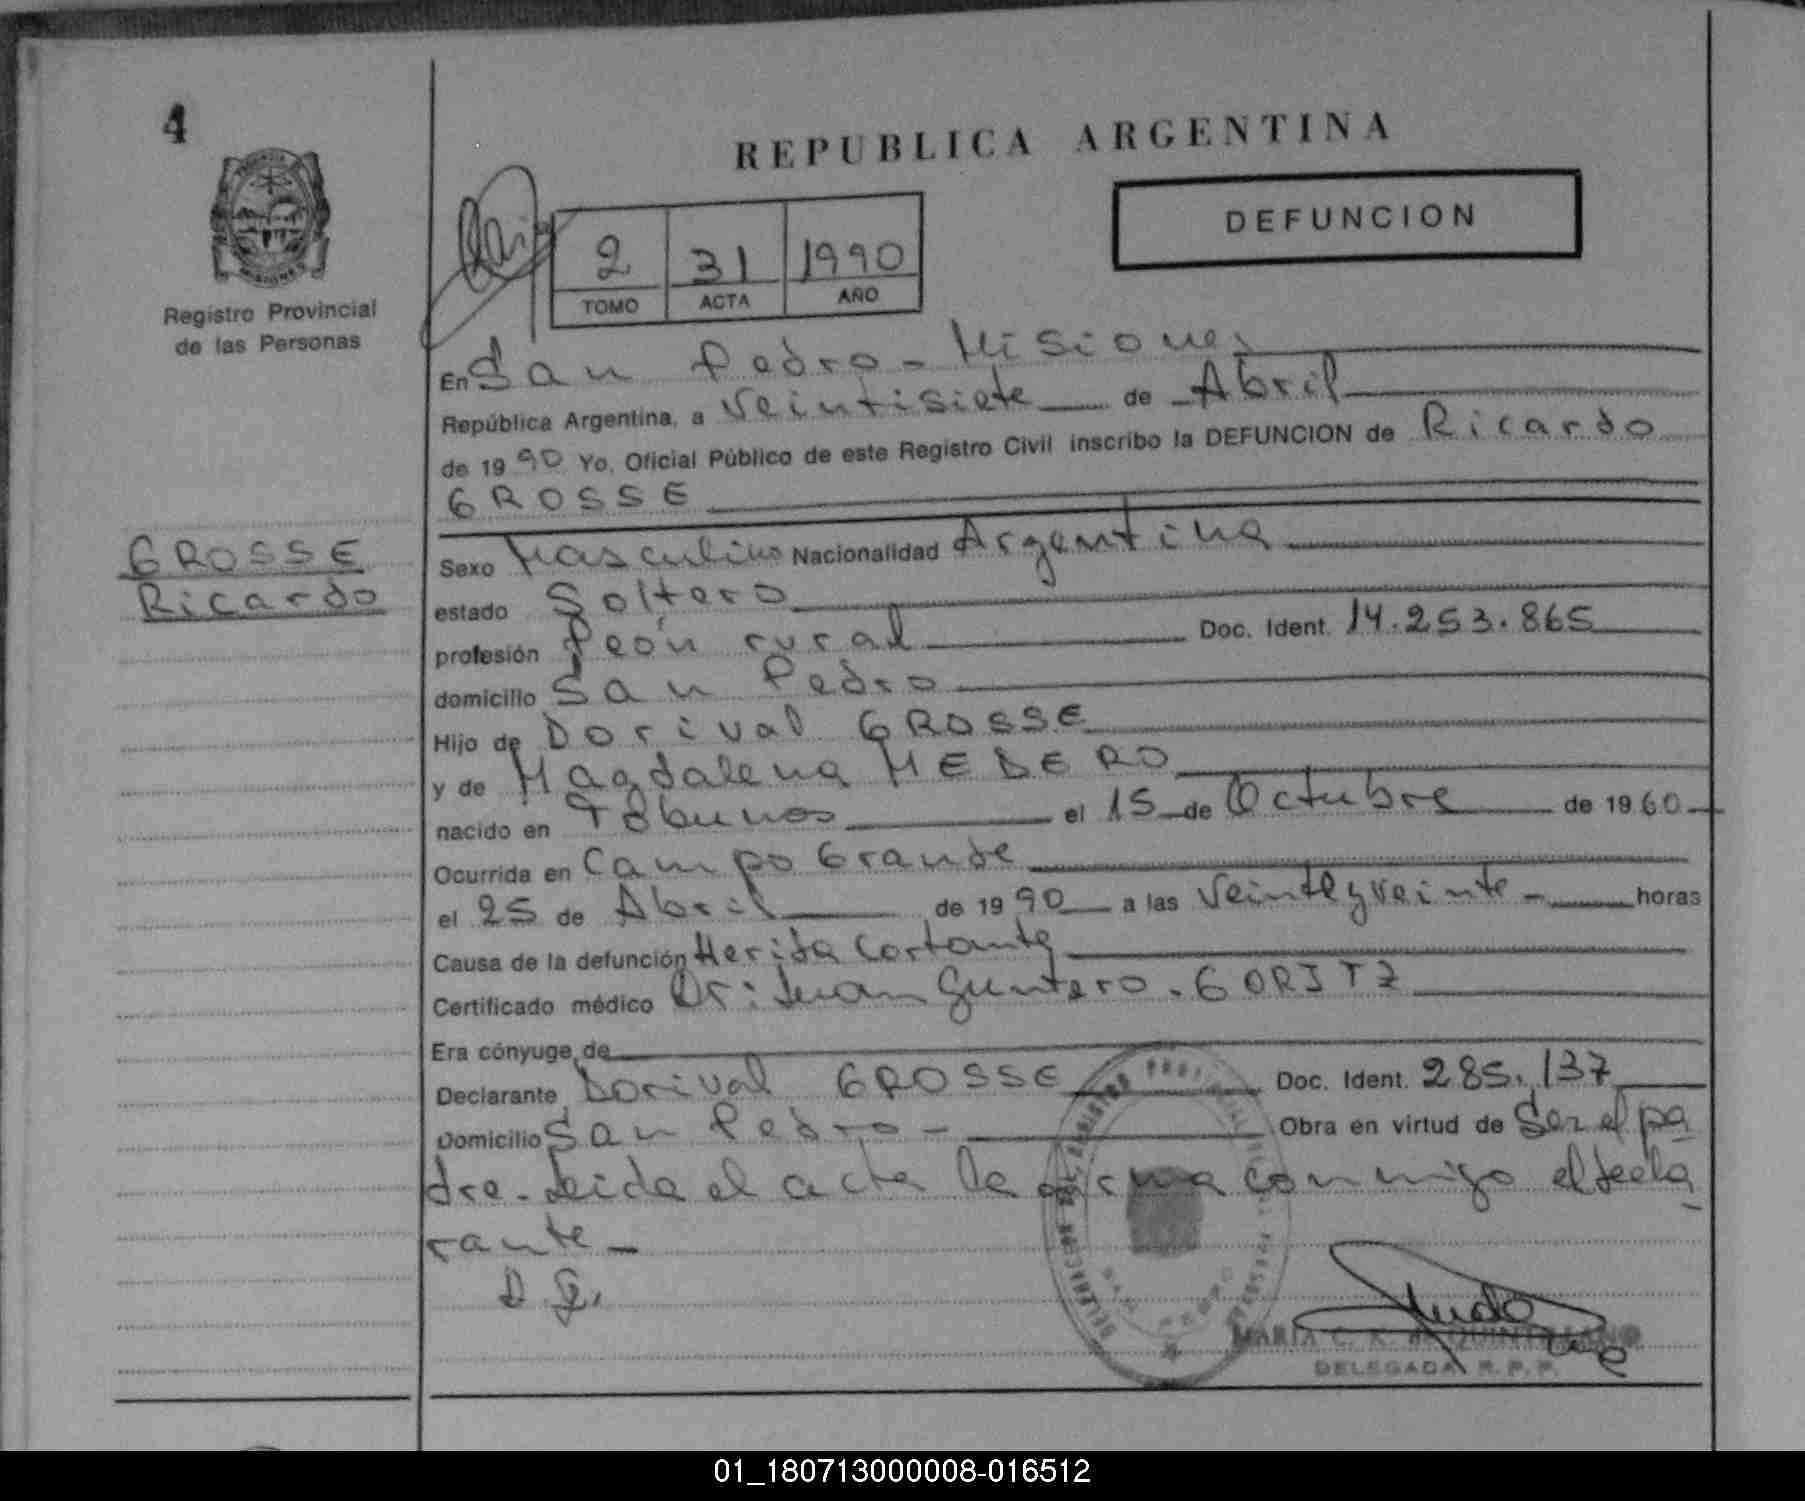 4
REPUBLICA ARGENTINA
DEFUNCION
2 31 1990
TOMO ACTA AÑO
Registro Provincial
de las Personas
En San Pedro - Misiones
República Argentina, a Veintisiete de Abril
de 1990 Yo, Oficial Público de este Registro Civil inscribo la DEFUNCION de Ricardo
GROSSE
GROSSE
Ricardo
Sexo Masculino Nacionalidad Argentina
estado Soltero
profesión Peón rural Doc. Ident. 14.253.865
domicilio San Pedro
Hijo de Dorival GROSSE
y de Magdalena MEDERO
nacido en el 15 de Octubre de 1960
Ocurrida en Campo Grande
el 25 de Abril de 1990 a las Veinte y veinte - horas
Causa de la defunción Herida Cortante
Certificado médico Dr: Juan Guntero. GORITZ
Era cónyuge de
Declarante Dorival GROSSE Doc. Ident. 285.137
Domicilio San Pedro - Obra en virtud de Ser el pa
dre. Leida el acta la firma conmigo el decla
rante -
D. G.
MARIA C. K. de QUINTANA
DELEGADA R. P. P.
01_180713000008-016512